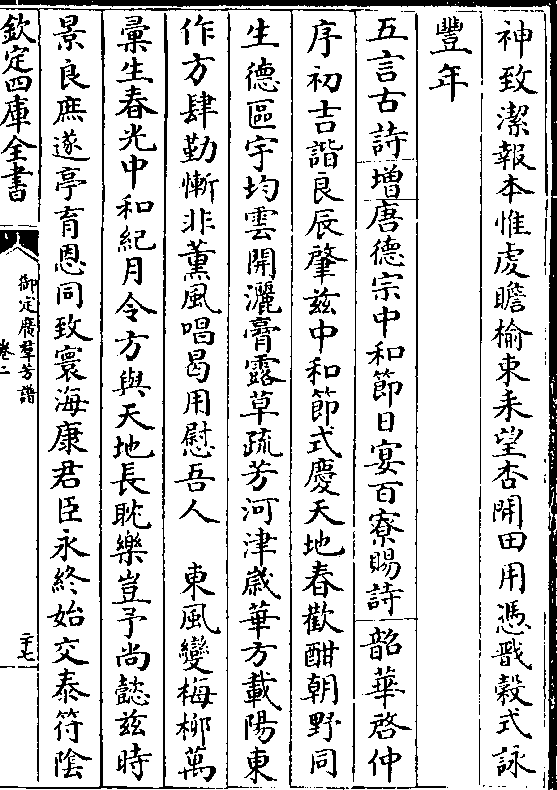 神致潔報本惟虔瞻榆束耒望杏開田用憑戩穀式詠
豐年
五言古詩增唐德宗中和節日宴百寮賜詩韶華啓仲
序初吉諧良辰肇兹中和節式慶天地春歡酣朝野同
生德區宇均雲開灑膏露草疏芳河津歲華方載陽東
作方肆勤慚非薰風唱曷用慰吾人 東風變梅柳萬
彚生春光中和紀月令方與天地長耽樂豈予尚懿兹時
景良庶遂亭育恩同致寰海康君臣永終始交泰符陰
欽定四庫全書
御定廣羣芳譜
卷二
二十七